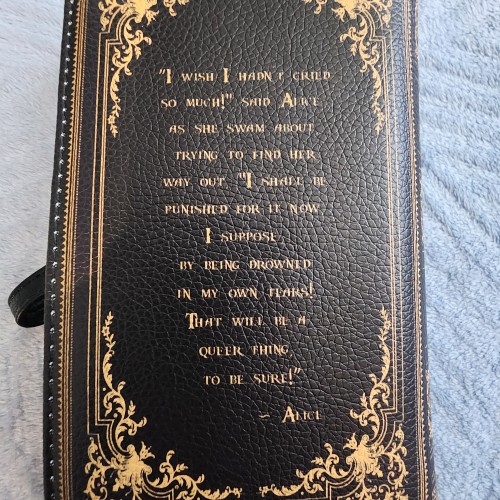 "I wish I hadn't cried
so much!" said Alice,
as she swam about,
trying to find her
way out. "I shall be
punished for it now,
I suppose,
by being drowned
in my own tears!
That will be a
queer thing,
to be sure!"
~ Alice